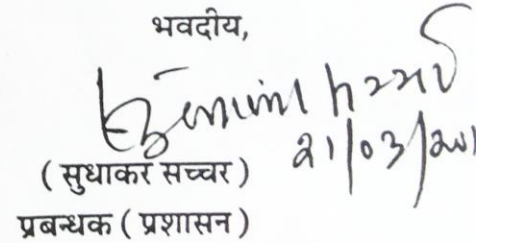 भवदीय,
21/03/201
( सुधाकर सच्चर )
प्रबन्धक ( प्रशासन )